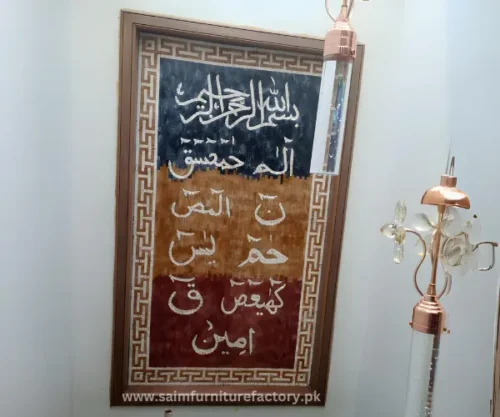 بسم الله الرحمن الرحيم
الٓمٓ حٰمٓعٓسٓقٓ
نٓ الٓمٓصٓ
حٰمٓ يٰسٓ
كٓهٰيٰعٓصٓ قٓ
امين
www.saimfurniturefactory.pk